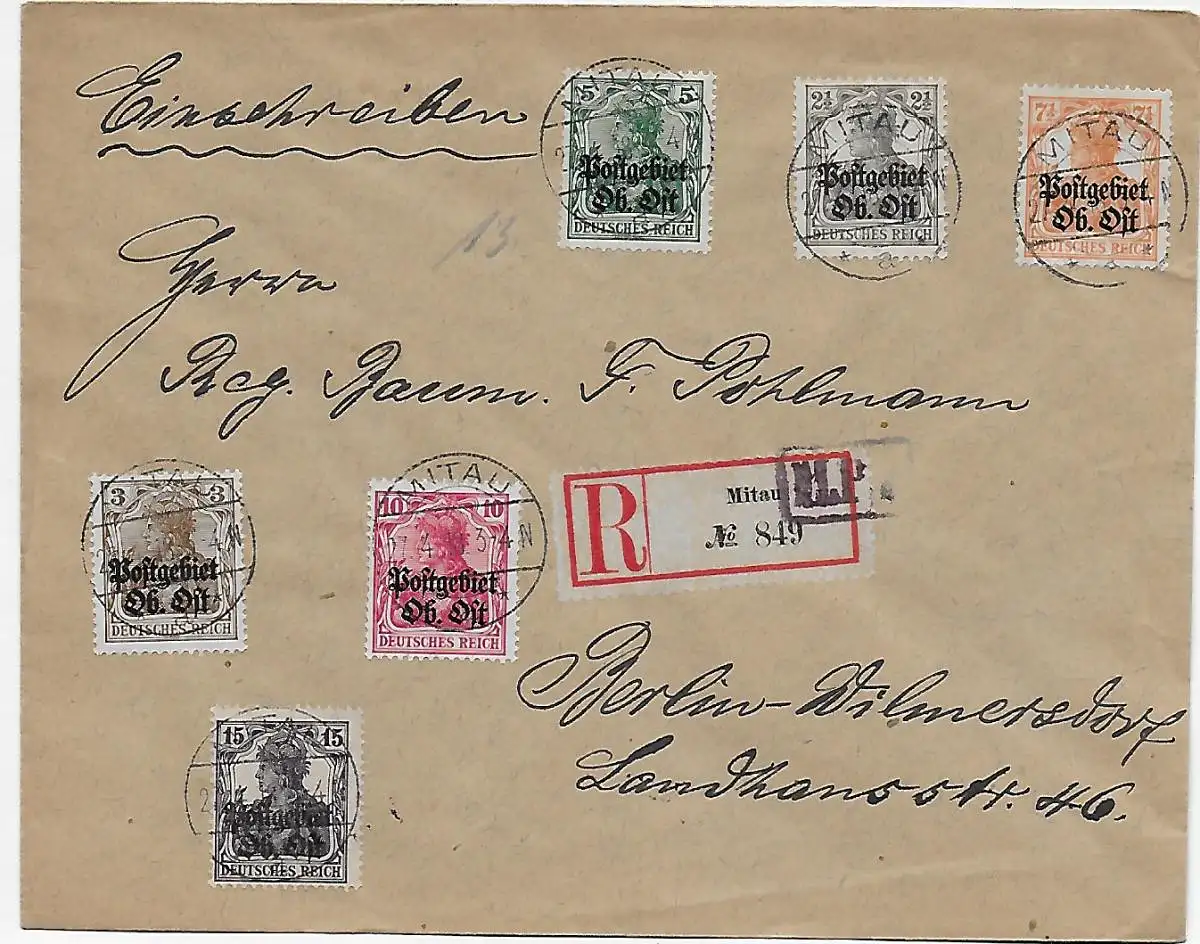 Einschreiben
MITAU
5 5
Postgebiet
Ob. Ost
DEUTSCHES REICH
MITAU
2½ 2½
Postgebiet
Ob. Ost
DEUTSCHES REICH
* a *
MITAU
7½ 7½
Postgebiet
Ob. Ost
DEUTSCHES REICH
* a *
13
Herrn
Reg. Baum. F. Pohlmann
MITAU
3 3
Postgebiet
Ob. Ost
DEUTSCHES REICH
MITAU
10 10
3-4 N
Postgebiet
Ob. Ost
DEUTSCHES REICH
R
Mitau
M.P.
№ 849
Berlin-Wilmersdorf
Landhausstr. 46.
15 15
Postgebiet
Ob. Ost
DEUTSCHES REICH